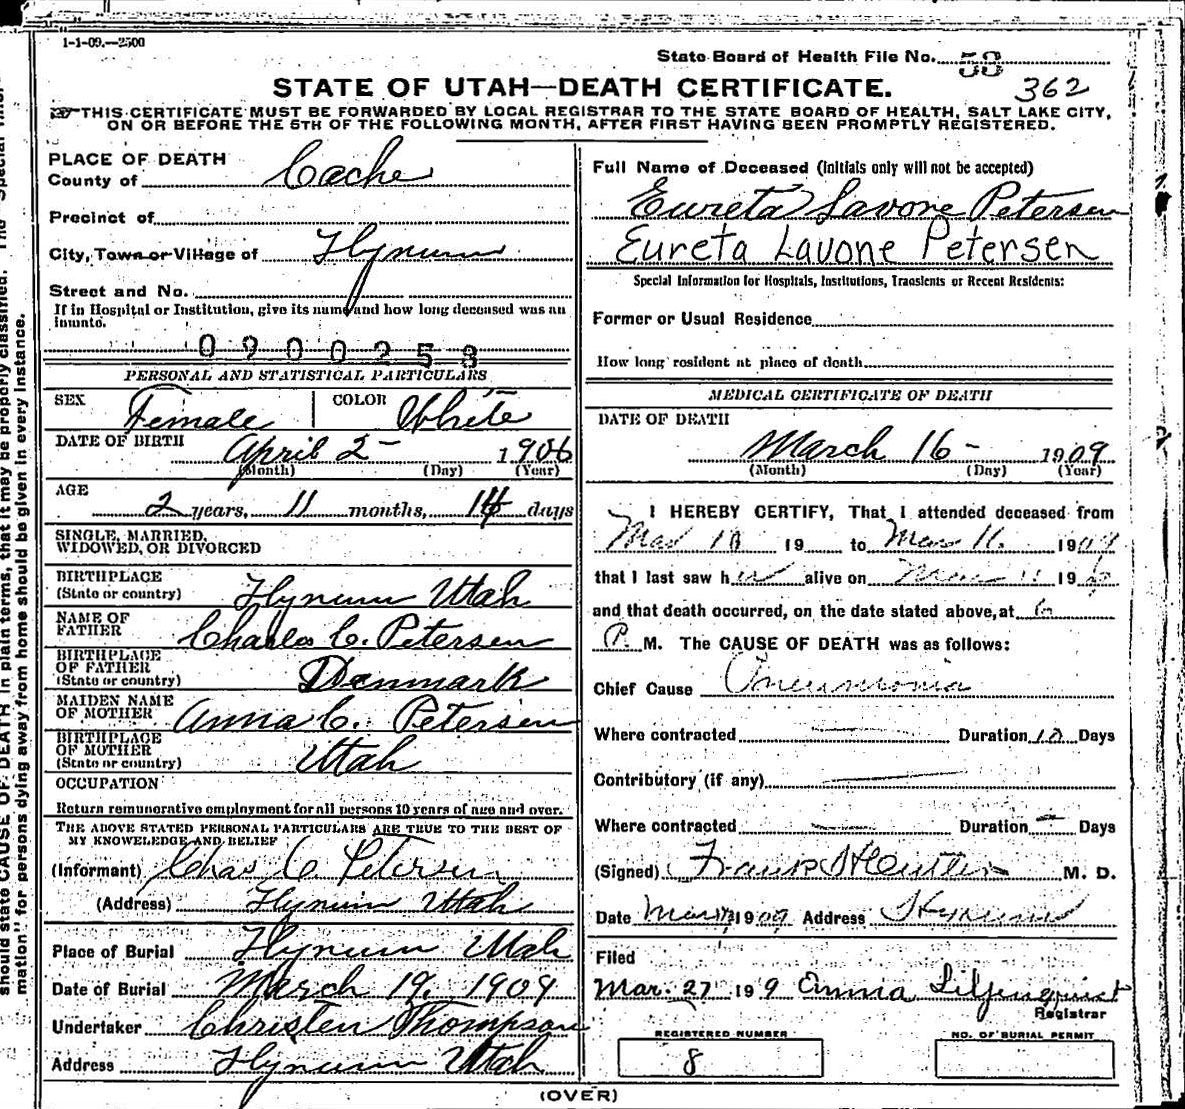 1-1-09.—2500
State Board of Health File No. 58
STATE OF UTAH—DEATH CERTIFICATE. 362
THIS CERTIFICATE MUST BE FORWARDED BY LOCAL REGISTRAR TO THE STATE BOARD OF HEALTH, SALT LAKE CITY,
ON OR BEFORE THE 5TH OF THE FOLLOWING MONTH, AFTER FIRST HAVING BEEN PROMPTLY REGISTERED.
PLACE OF DEATH
County of Cache
Precinct of
City, Town or Village of Hyrum
Street and No.
If in Hospital or Institution, give its name and how long deceased was an
inmate.
0900258
PERSONAL AND STATISTICAL PARTICULARS
SEX Female COLOR White
DATE OF BIRTH April 2 - 1906
(Month) (Day) (Year)
AGE
2 years, 11 months, 14 days
SINGLE, MARRIED,
WIDOWED, OR DIVORCED
BIRTHPLACE
(State or country) Hyrum Utah
NAME OF
FATHER Charles C. Petersen
BIRTHPLACE
OF FATHER
(State or country) Denmark
MAIDEN NAME
OF MOTHER Anna C. Petersen
BIRTHPLACE
OF MOTHER
(State or country) Utah
OCCUPATION
Return remunerative employment for all persons 10 years of age and over.
THE ABOVE STATED PERSONAL PARTICULARS ARE TRUE TO THE BEST OF
MY KNOWLEDGE AND BELIEF
(Informant) Chas C Petersen
(Address) Hyrum Utah
Place of Burial Hyrum Utah
Date of Burial March 19, 1909
Undertaker Christen Thompson
Address Hyrum Utah
Full Name of Deceased (Initials only will not be accepted)
Eureta Lavone Petersen
Eureta Lavone Petersen
Special Information for Hospitals, Institutions, Transients or Recent Residents:
Former or Usual Residence
How long resident at place of death
MEDICAL CERTIFICATE OF DEATH
DATE OF DEATH
March 16 - 1909
(Month) (Day) (Year)
I HEREBY CERTIFY, That I attended deceased from
Mar 10 19 to Mar 16 1909
that I last saw her alive on Mar 19
and that death occurred, on the date stated above, at 6
P. M. The CAUSE OF DEATH was as follows:
Chief Cause Pneumonia
Where contracted Duration 10 Days
Contributory (if any)
Where contracted Duration Days
(Signed) Frank M. D.
Date Mar 1909 Address Hyrum
Filed
Mar. 27 19 9 Anna Liljenquist
Registrar
REGISTERED NUMBER
8
NO. OF BURIAL PERMIT
(OVER)
should state CAUSE OF DEATH in plain terms, that it may be properly classified. The Special Infor-
mation" for persons dying away from home should be given in every instance.